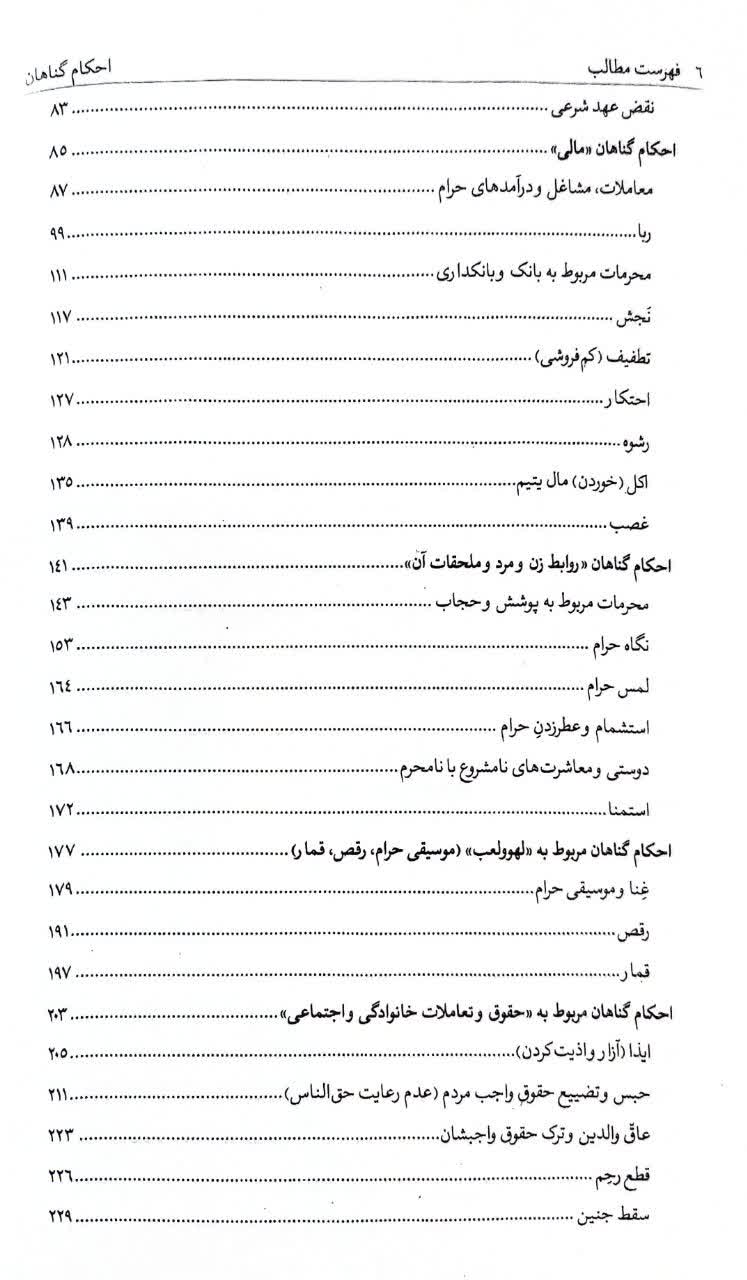 ٦ فهرست مطالب احکام گناهان
نقض عهد شرعی ........ ٨٣
احکام گناهان «مالی» ........ ٨٥
معاملات، مشاغل و درآمدهای حرام ........ ٨٧
ربا ........ ٩٩
محرمات مربوط به بانک و بانکداری ........ ١١١
نَجش ........ ١١٧
تطفیف (کم‌فروشی) ........ ١٢١
احتکار ........ ١٢٧
رشوه ........ ١٢٨
اکل (خوردن) مال یتیم ........ ١٣٥
غصب ........ ١٣٩
احکام گناهان «روابط زن و مرد و ملحقات آن» ........ ١٤١
محرمات مربوط به پوشش و حجاب ........ ١٤٣
نگاه حرام ........ ١٥٣
لمس حرام ........ ١٦٤
استشمام و عطرزدنِ حرام ........ ١٦٦
دوستی و معاشرت‌های نامشروع با نامحرم ........ ١٦٨
استمنا ........ ١٧٢
احکام گناهان مربوط به «لهوولعب» (موسیقی حرام، رقص، قمار) ........ ١٧٧
غِنا و موسیقی حرام ........ ١٧٩
رقص ........ ١٩١
قمار ........ ١٩٧
احکام گناهان مربوط به «حقوق و تعاملات خانوادگی و اجتماعی» ........ ٢٠٣
ایذا (آزار و اذیت کردن) ........ ٢٠٥
حبس و تضییع حقوقِ واجب مردم (عدم رعایت حق‌الناس) ........ ٢١١
عاقّ والدین و ترک حقوق واجبشان ........ ٢٢٣
قطع رحِم ........ ٢٢٦
سقط جنین ........ ٢٢٩